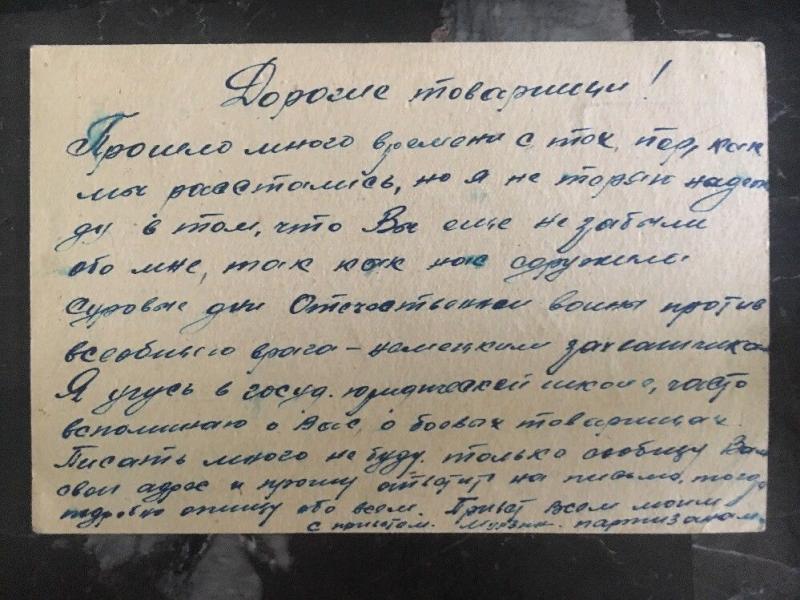 Дорогие товарищи!
Прошло много времени с тех пор, как
мы расстались, но я не теряю надеж
ду в том, что Вы еще не забыли
обо мне, так как нас сдружили
суровые дни Отечественной войны против
всеобщего врага – немецким захватчика
Я учусь в госуд. юридической школе, часто
вспоминаю о Вас, о боевых товарищах.
Писать много не буду. только сообщу Вам
свой адрес и прошу ответить на письмо, тогда
подробно опишу обо всем. Привет всем моим
с приветом. партизанам.